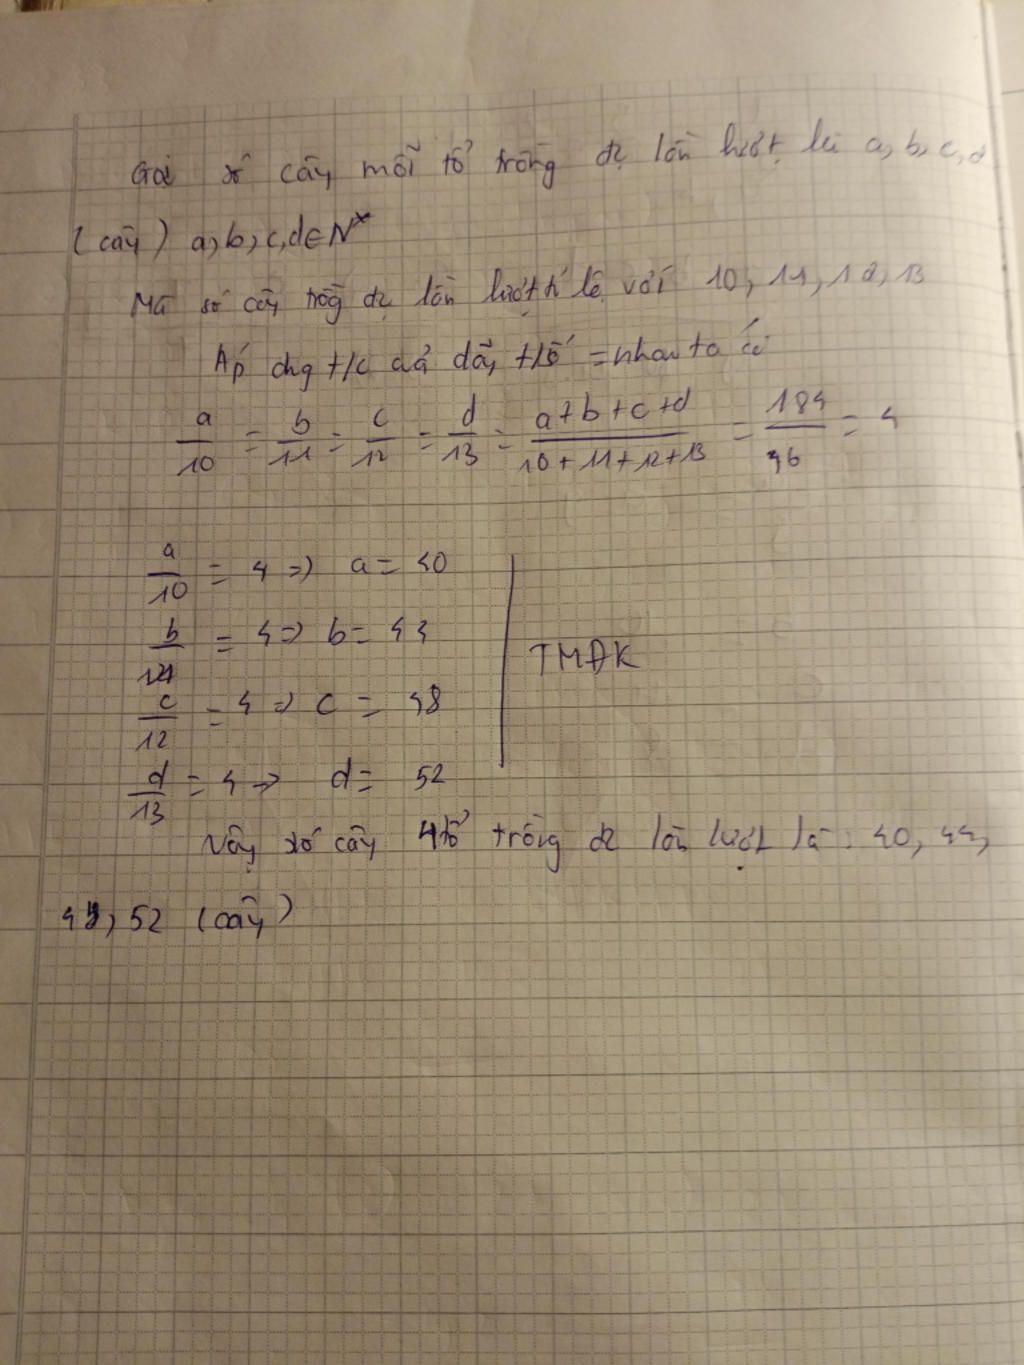 Gọi số cây mỗi tổ trồng đc lần lượt là a, b, c, d
(cây) a, b, c, d ∈ N*
Mà số cây trồg đc lần lượt tỉ lệ với 10, 11, 12, 13
Áp dụg t/c của dãy tỉ số = nhau ta có
a/10 = b/11 = c/12 = d/13 = (a+b+c+d)/(10+11+12+13) = 184/46 = 4
a/10 = 4 => a = 40
b/11 = 4 => b = 44
TMĐK
c/12 = 4 => c = 48
d/13 = 4 => d = 52
Vậy số cây 4 tổ trồng đc lần lượt là : 40, 44,
48, 52 (cây)